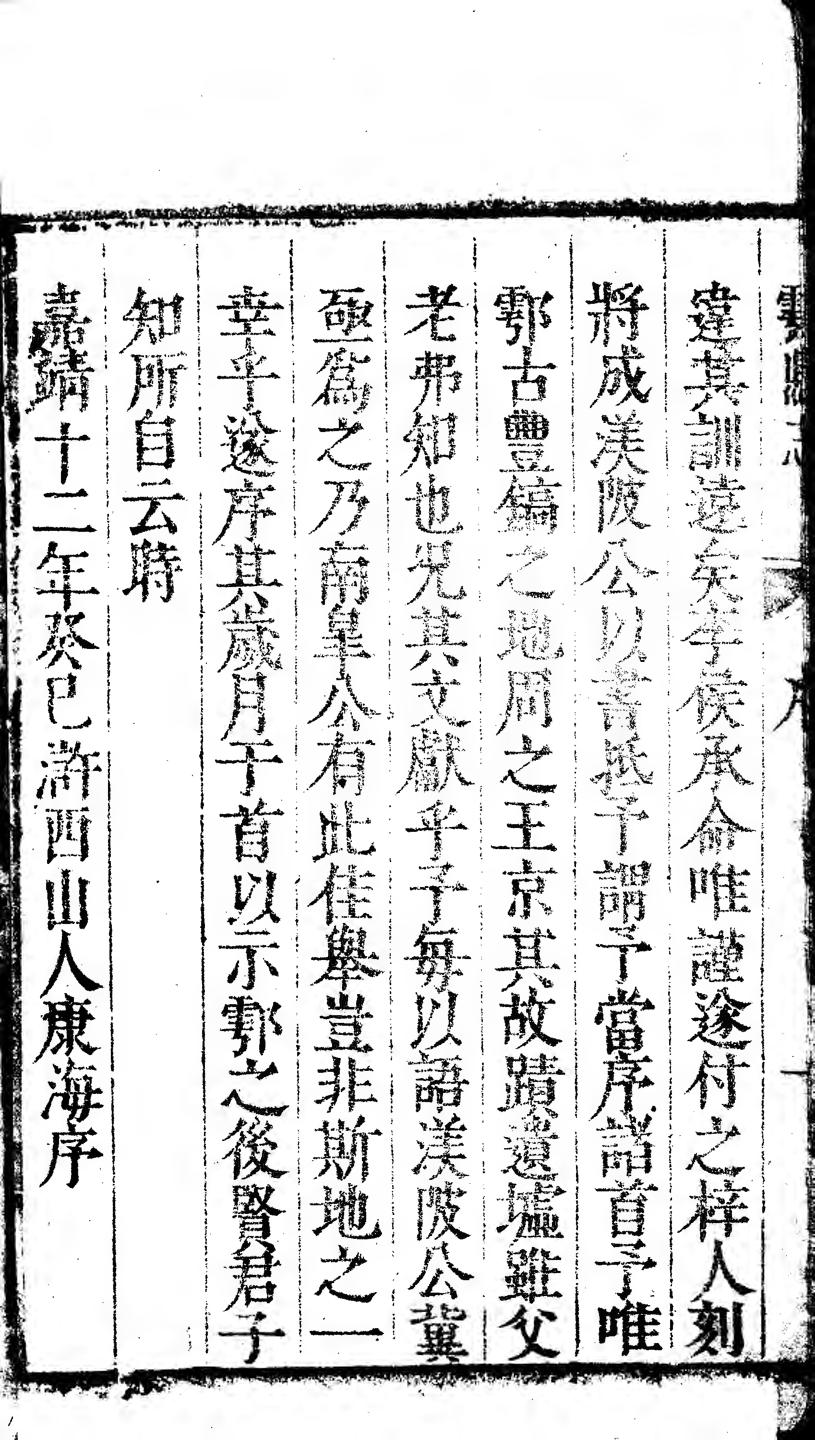 違其訓遠矣李侯承命唯謹遂付之梓人刻
將成渼陂公以書抵予謂予當序諸首予唯
鄠古豐鎬之地周之王京其故蹟遺墟雖父
老弗知也況其文獻乎予每以語渼陂公冀
亟爲之乃南皐公有此佳舉豈非斯地之一
幸乎遂序其歲月于首以示鄠之後賢君子
知所自云時
嘉靖十二年癸巳滸西山人康海序